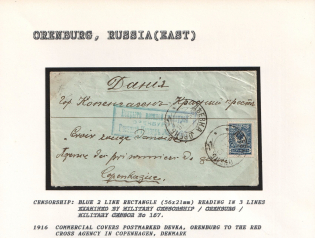 ORENBURG, RUSSIA(EAST)
Данія
Гор Копенгагенъ Красный крестъ
Croix rouge Danoise
Agence des prisonniers de guerre
Copenhague.
CENSORSHIP: BLUE 2 LINE RECTANGLE (56x21mm) READING IN 3 LINES
EXAMINED BY MILITARY CENSORSHIP / ORENBURG /
MILITARY CENSOR No 187.
1916 COMMERCIAL COVERS POSTMARKED DEVKA, ORENBURG TO THE RED
CROSS AGENCY IN COPENHAGEN, DENMARK